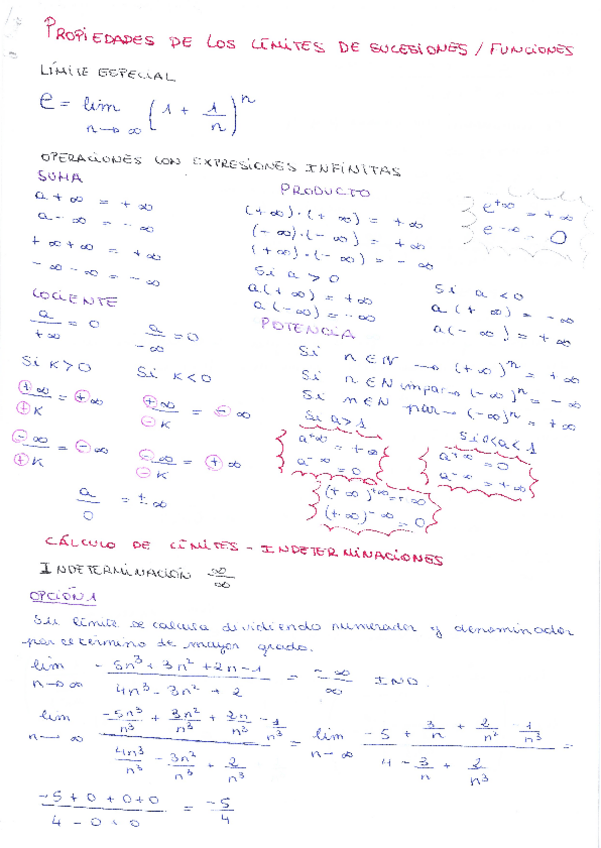 PROPIEDADES DE LOS LÍMITES DE SUCESIONES / FUNCIONES
LÍMITE ESPECIAL
e = lim n→∞ (1 + 1/n)^n
OPERACIONES CON EXPRESIONES INFINITAS
SUMA
a + ∞ = +∞
a - ∞ = -∞
+∞ + ∞ = +∞
-∞ - ∞ = -∞
PRODUCTO
(+∞)·(+∞) = +∞
(-∞)·(-∞) = +∞
(+∞)·(-∞) = -∞
Si a > 0
a(+∞) = +∞
a(-∞) = -∞
Si a < 0
a(+∞) = -∞
a(-∞) = +∞
e^+∞ = +∞
e^-∞ = 0
COCIENTE
a/+∞ = 0
a/-∞ = 0
Si K > 0
Si K < 0
+∞/+K = +∞
+∞/-K = -∞
-∞/+K = -∞
-∞/-K = +∞
a/0 = ±∞
POTENCIA
Si n ∈ N → (+∞)^n = +∞
Si n ∈ N impar → (-∞)^n = -∞
Si n ∈ N par → (-∞)^n = +∞
Si a > 1
a^+∞ = +∞
a^-∞ = 0
Si 0 < a < 1
a^+∞ = 0
a^-∞ = +∞
(+∞)^+∞ = +∞
(+∞)^-∞ = 0
CÁLCULO DE LÍMITES - INDETERMINACIONES
INDETERMINACIÓN ∞/∞
OPCIÓN 1
Su límite se calcula dividiendo numerador y denominador
por el término de mayor grado.
lim n→∞ (-5n³ + 3n² + 2n - 1)/(4n³ - 3n² + 2) = -∞/∞ IND.
lim n→∞ (-5n³/n³ + 3n²/n³ + 2n/n³ - 1/n³)/(4n³/n³ - 3n²/n³ + 2/n³) = lim n→∞ (-5 + 3/n + 2/n² - 1/n³)/(4 - 3/n + 2/n³) =
(-5 + 0 + 0 + 0)/(4 - 0 + 0) = -5/4